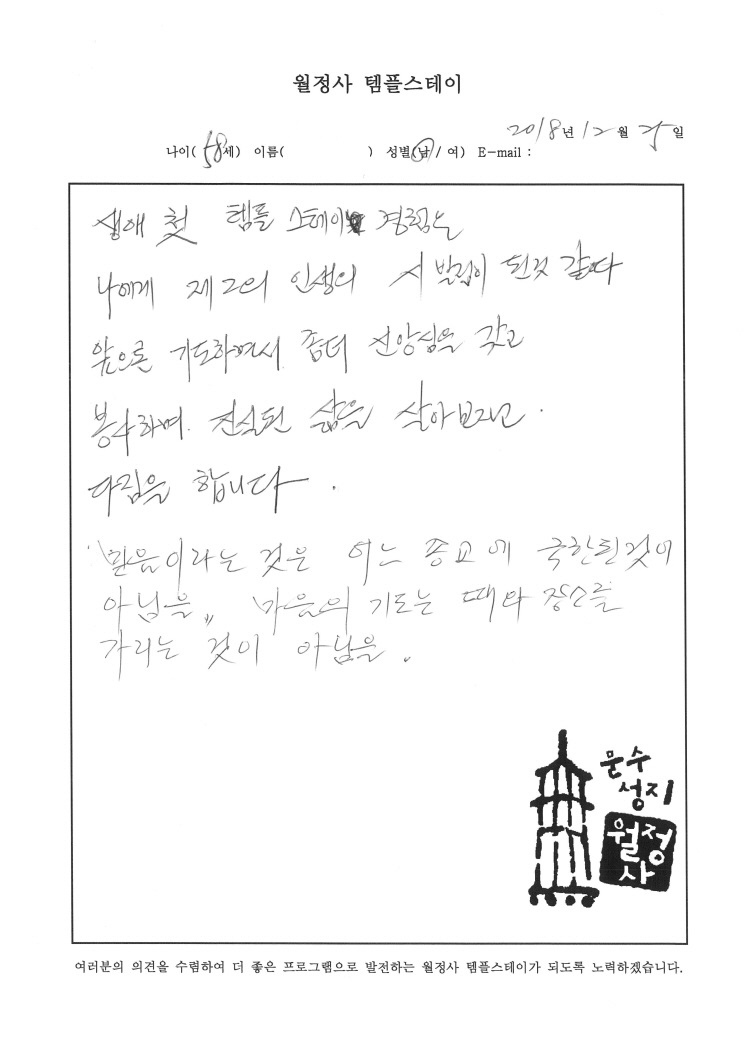 월정사 템플스테이
2018년 12월 25일
나이( 58세) 이름( ) 성별(남 / 여) E-mail :
생애 첫 템플 스테이 경험는
나에게 제2의 인생의 시발점이 된것 같다
앞으론 기도하면서 좀더 신앙심을 갖고
봉사하며. 진실된 삶을 살아보자고.
다짐을 합니다.
"믿음이라는 것은 어느 종교에 국한된것이
아님을" 마음의 기도는 때와 장소를
가리는 것이 아님을.
문수
성지
월정
사
여러분의 의견을 수렴하여 더 좋은 프로그램으로 발전하는 월정사 템플스테이가 되도록 노력하겠습니다.